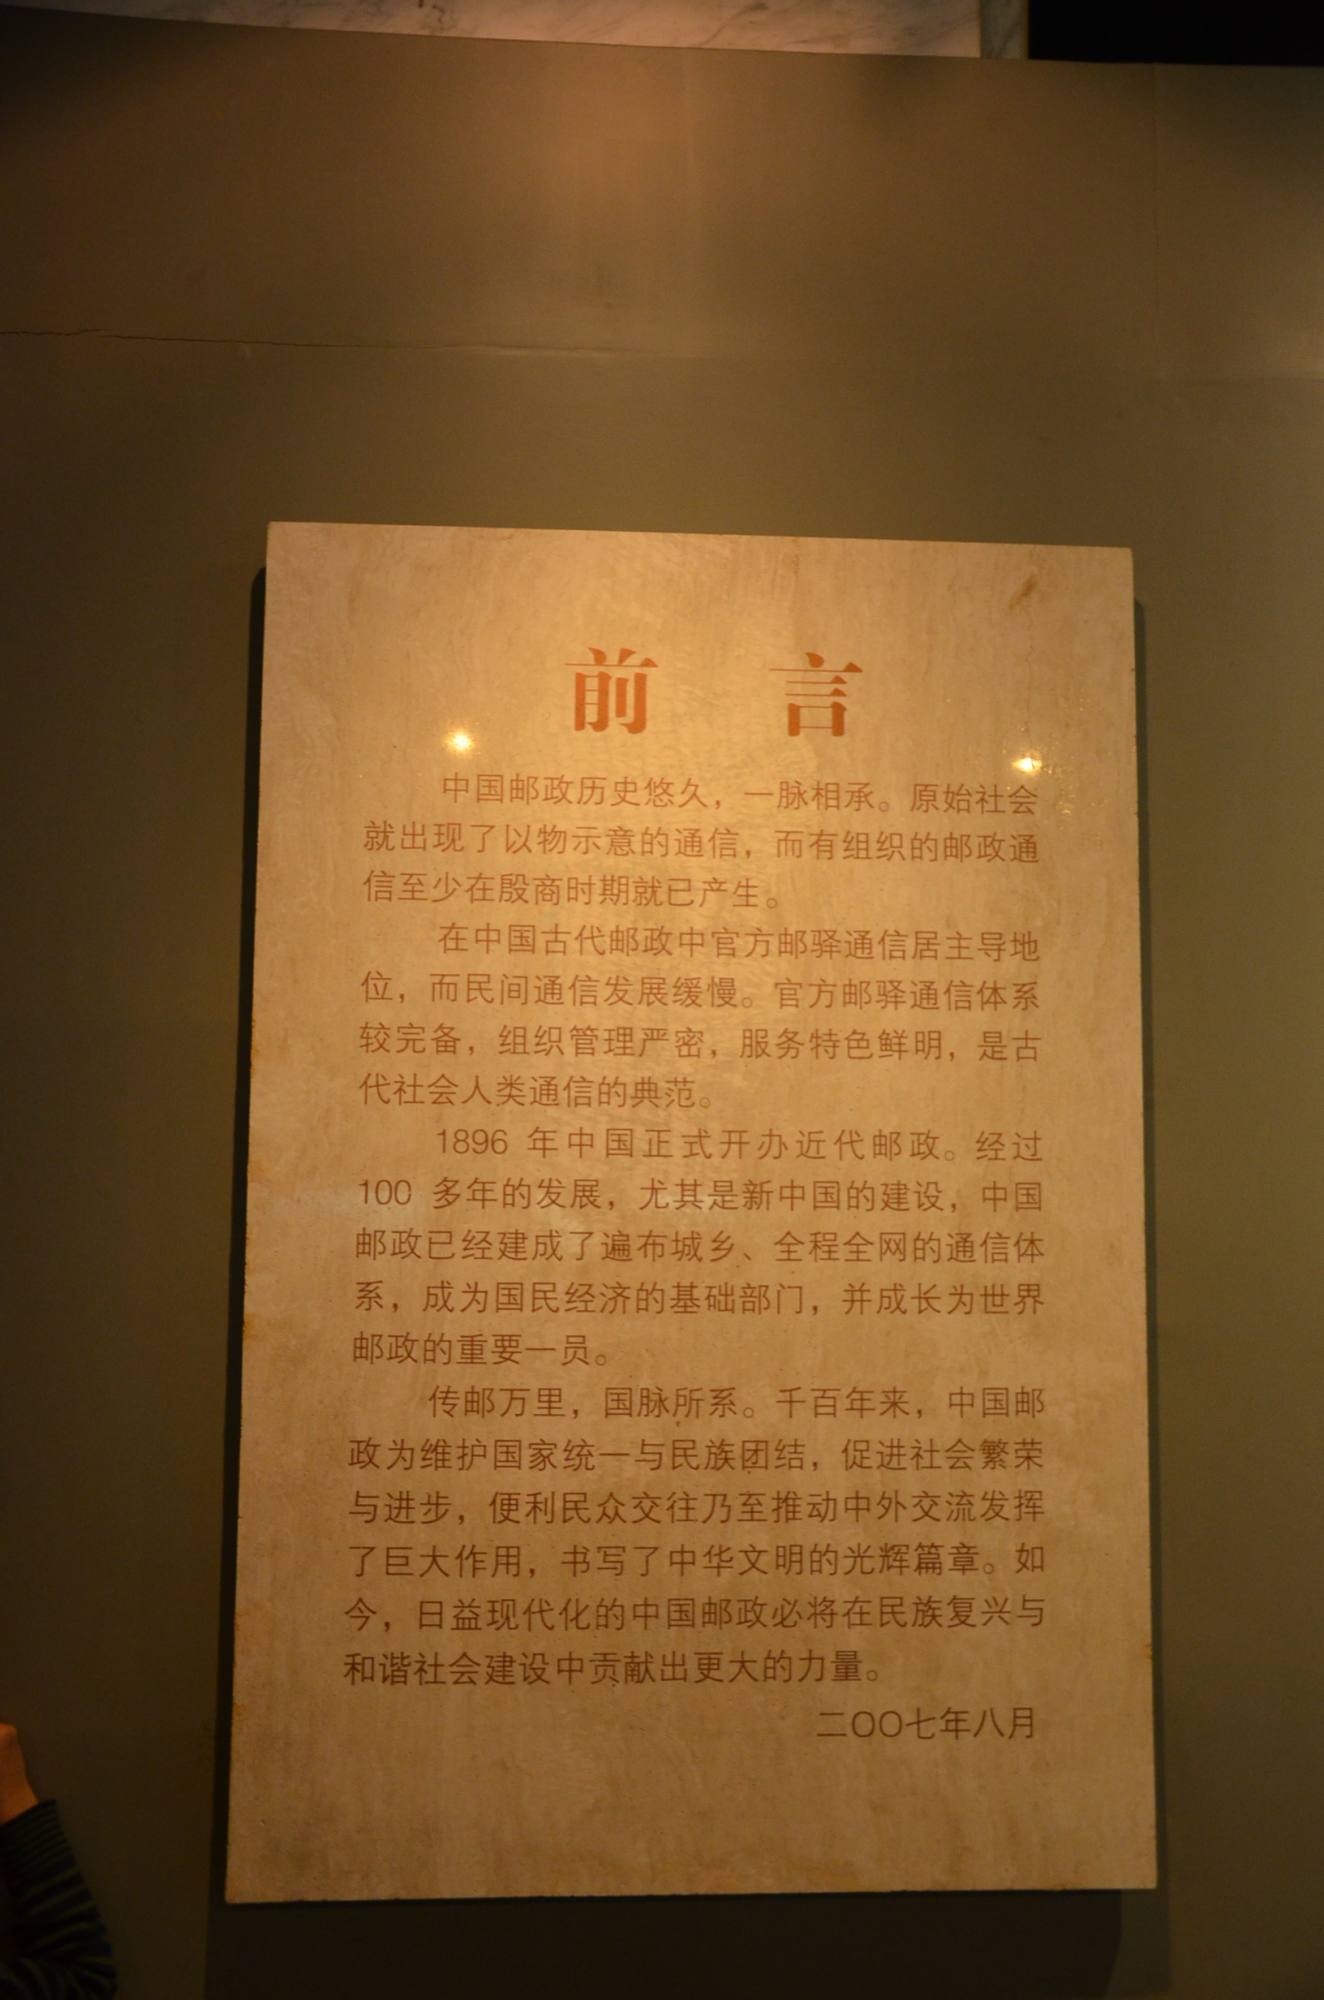 前言
中国邮政历史悠久，一脉相承。原始社会
就出现了以物示意的通信，而有组织的邮政通
信至少在殷商时期就已产生。
在中国古代邮政中官方邮驿通信居主导地
位，而民间通信发展缓慢。官方邮驿通信体系
较完备，组织管理严密，服务特色鲜明，是古
代社会人类通信的典范。
1896 年中国正式开办近代邮政。经过
100 多年的发展，尤其是新中国的建设，中国
邮政已经建成了遍布城乡、全程全网的通信体
系，成为国民经济的基础部门，并成长为世界
邮政的重要一员。
传邮万里，国脉所系。千百年来，中国邮
政为维护国家统一与民族团结，促进社会繁荣
与进步，便利民众交往乃至推动中外交流发挥
了巨大作用，书写了中华文明的光辉篇章。如
今，日益现代化的中国邮政必将在民族复兴与
和谐社会建设中贡献出更大的力量。
二〇〇七年八月